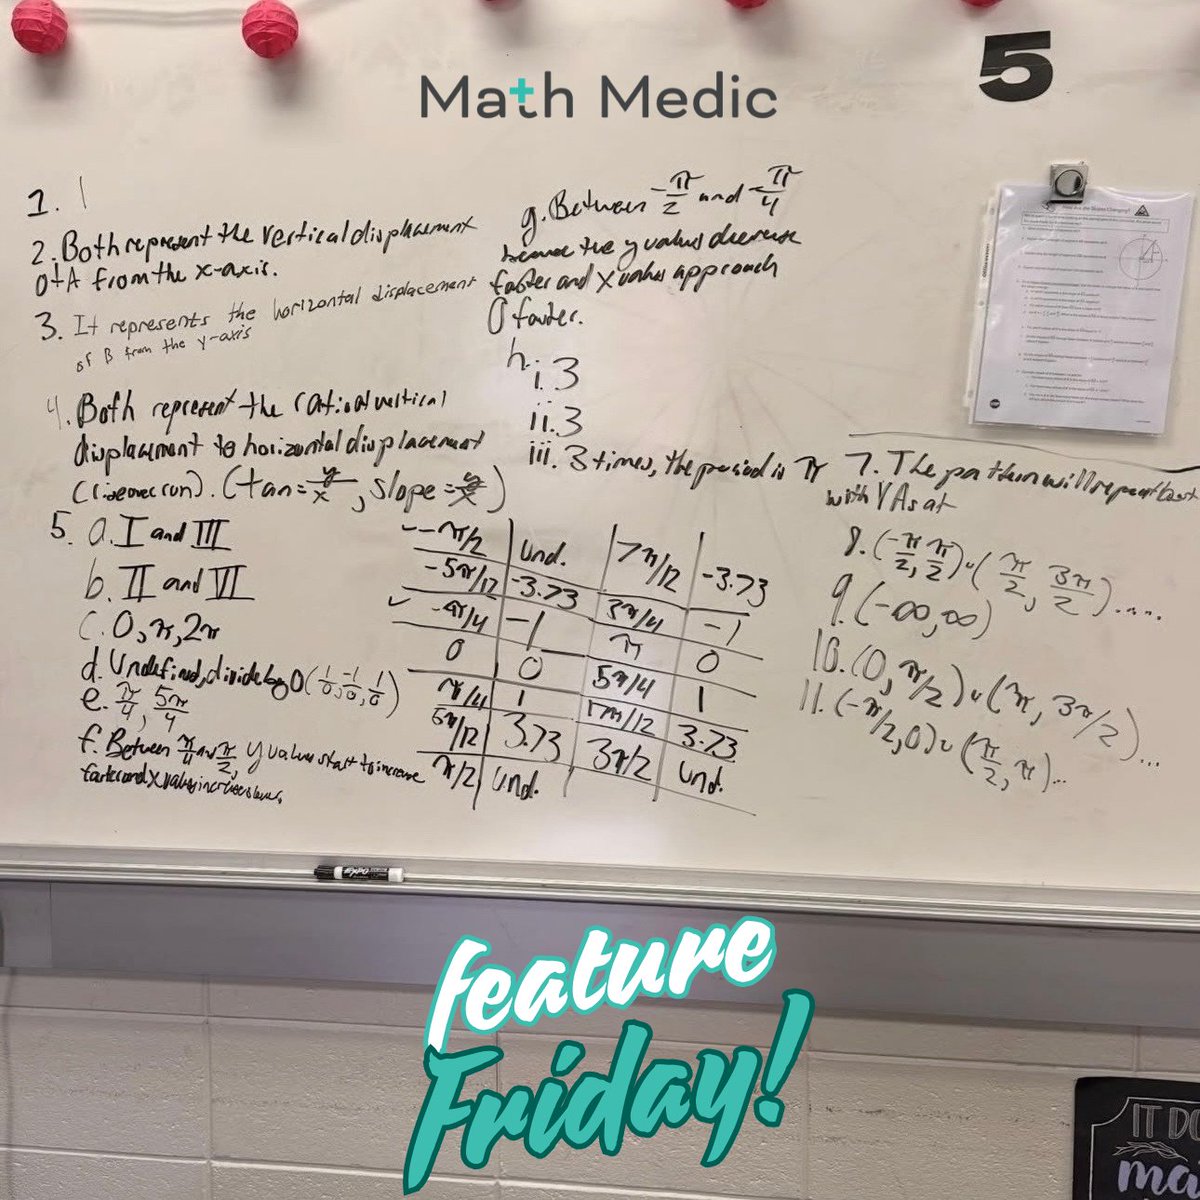 Math Medic
5
1. 1
2. Both represent the vertical displacement
of A from the x-axis.
3. It represents the horizontal displacement
of B from the y-axis
4. Both represent the ratio of vertical
displacement to horizontal displacement
(rise over run). (tan = y/x, slope = y/x)
5. a. I and III
b. II and VI
c. 0, π, 2π
d. Undefined, divide by 0 (1/0, -1/0, 1/0)
e. π/4, 5π/4
f. Between π/4 and π/2, y values start to increase
faster and x values
g. Between -π/2 and -π/4
because the y values decrease
faster and x values approach
0 faster.
h. i. 3
ii. 3
iii. 3 times, the period is π
-π/2 | und. | 7π/12 | -3.73
-5π/12 | -3.73 | 3π/4 | -1
-π/4 | -1 | π | 0
0 | 0 | 5π/4 | 1
π/4 | 1 | 17π/12 | 3.73
5π/12 | 3.73 | 3π/2 | und.
π/2 | und.
7. The pattern will repeat
with VAs at
8. (-π/2, π/2) ∪ (π/2, 3π/2)....
9. (-∞, ∞)
10. (0, π/2) ∪ (π, 3π/2)...
11. (-π/2, 0) ∪ (π/2, π)...
EXPO
feature
Friday!
IT DO
ma